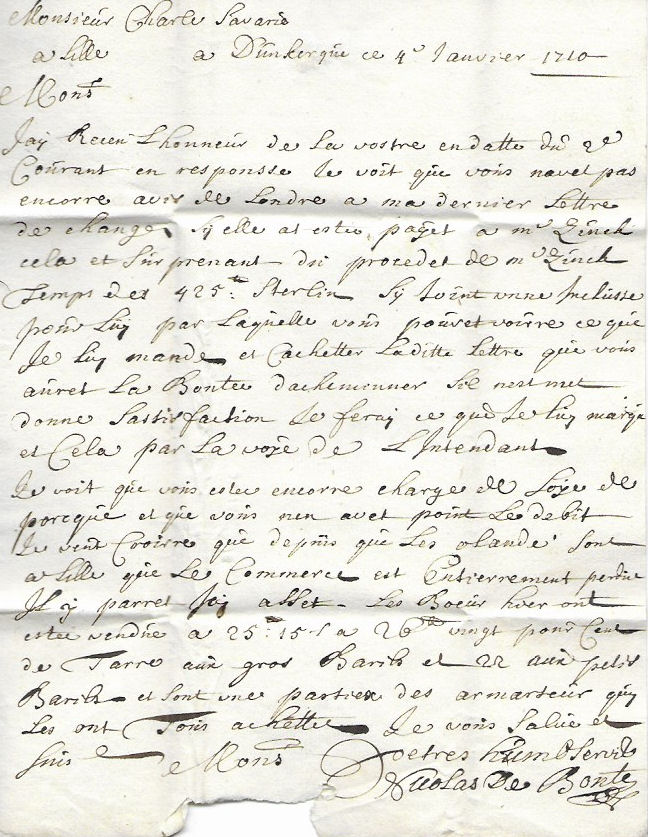 Monsieur Charle Savarie
a Lille a Dunkerque ce 4e Janvier 1710
Monsr
Jay Receu Lhonneur de La vostre en datte du 2e
Courant en responsse Je voit que vous navet pas
encorre avis de Londre a ma dernier Lettre
de change sy elle at estee payet a mr Zinck
cela et surprenant du procedet de mr Zinck
Temps des 425 Sterlin sy Joint unne Inclusse
pour Luy par Laquelle vous pouvet voirre ce que
Je luy mande et Cachetter Laditte Lettre que vous
auret La Bontee dachemenner Sil nest met
donne sattisfaction Je feray ce que Je luy marque
et Cela par La voye de LIntendant
Je voit que vous estee encorre charge de Soye de
porcque et que vous nen avet point Le debit
Je vent Croirre que depuis que Les olande sont
a Lille que Le Commerce est Entierrement perdue
Il y parret Jcy asset Les Boeur hier ont
estee vendue a 25 15 s a 26 vingt pour Cent
de Tarre aux gros Barils et 22 aux petis
Barils et sont une partiex des armarteur quy
Les ont Tous achettee Je vous salue et
suis Monsr Voetres humb servit
Nicolas De Bonte